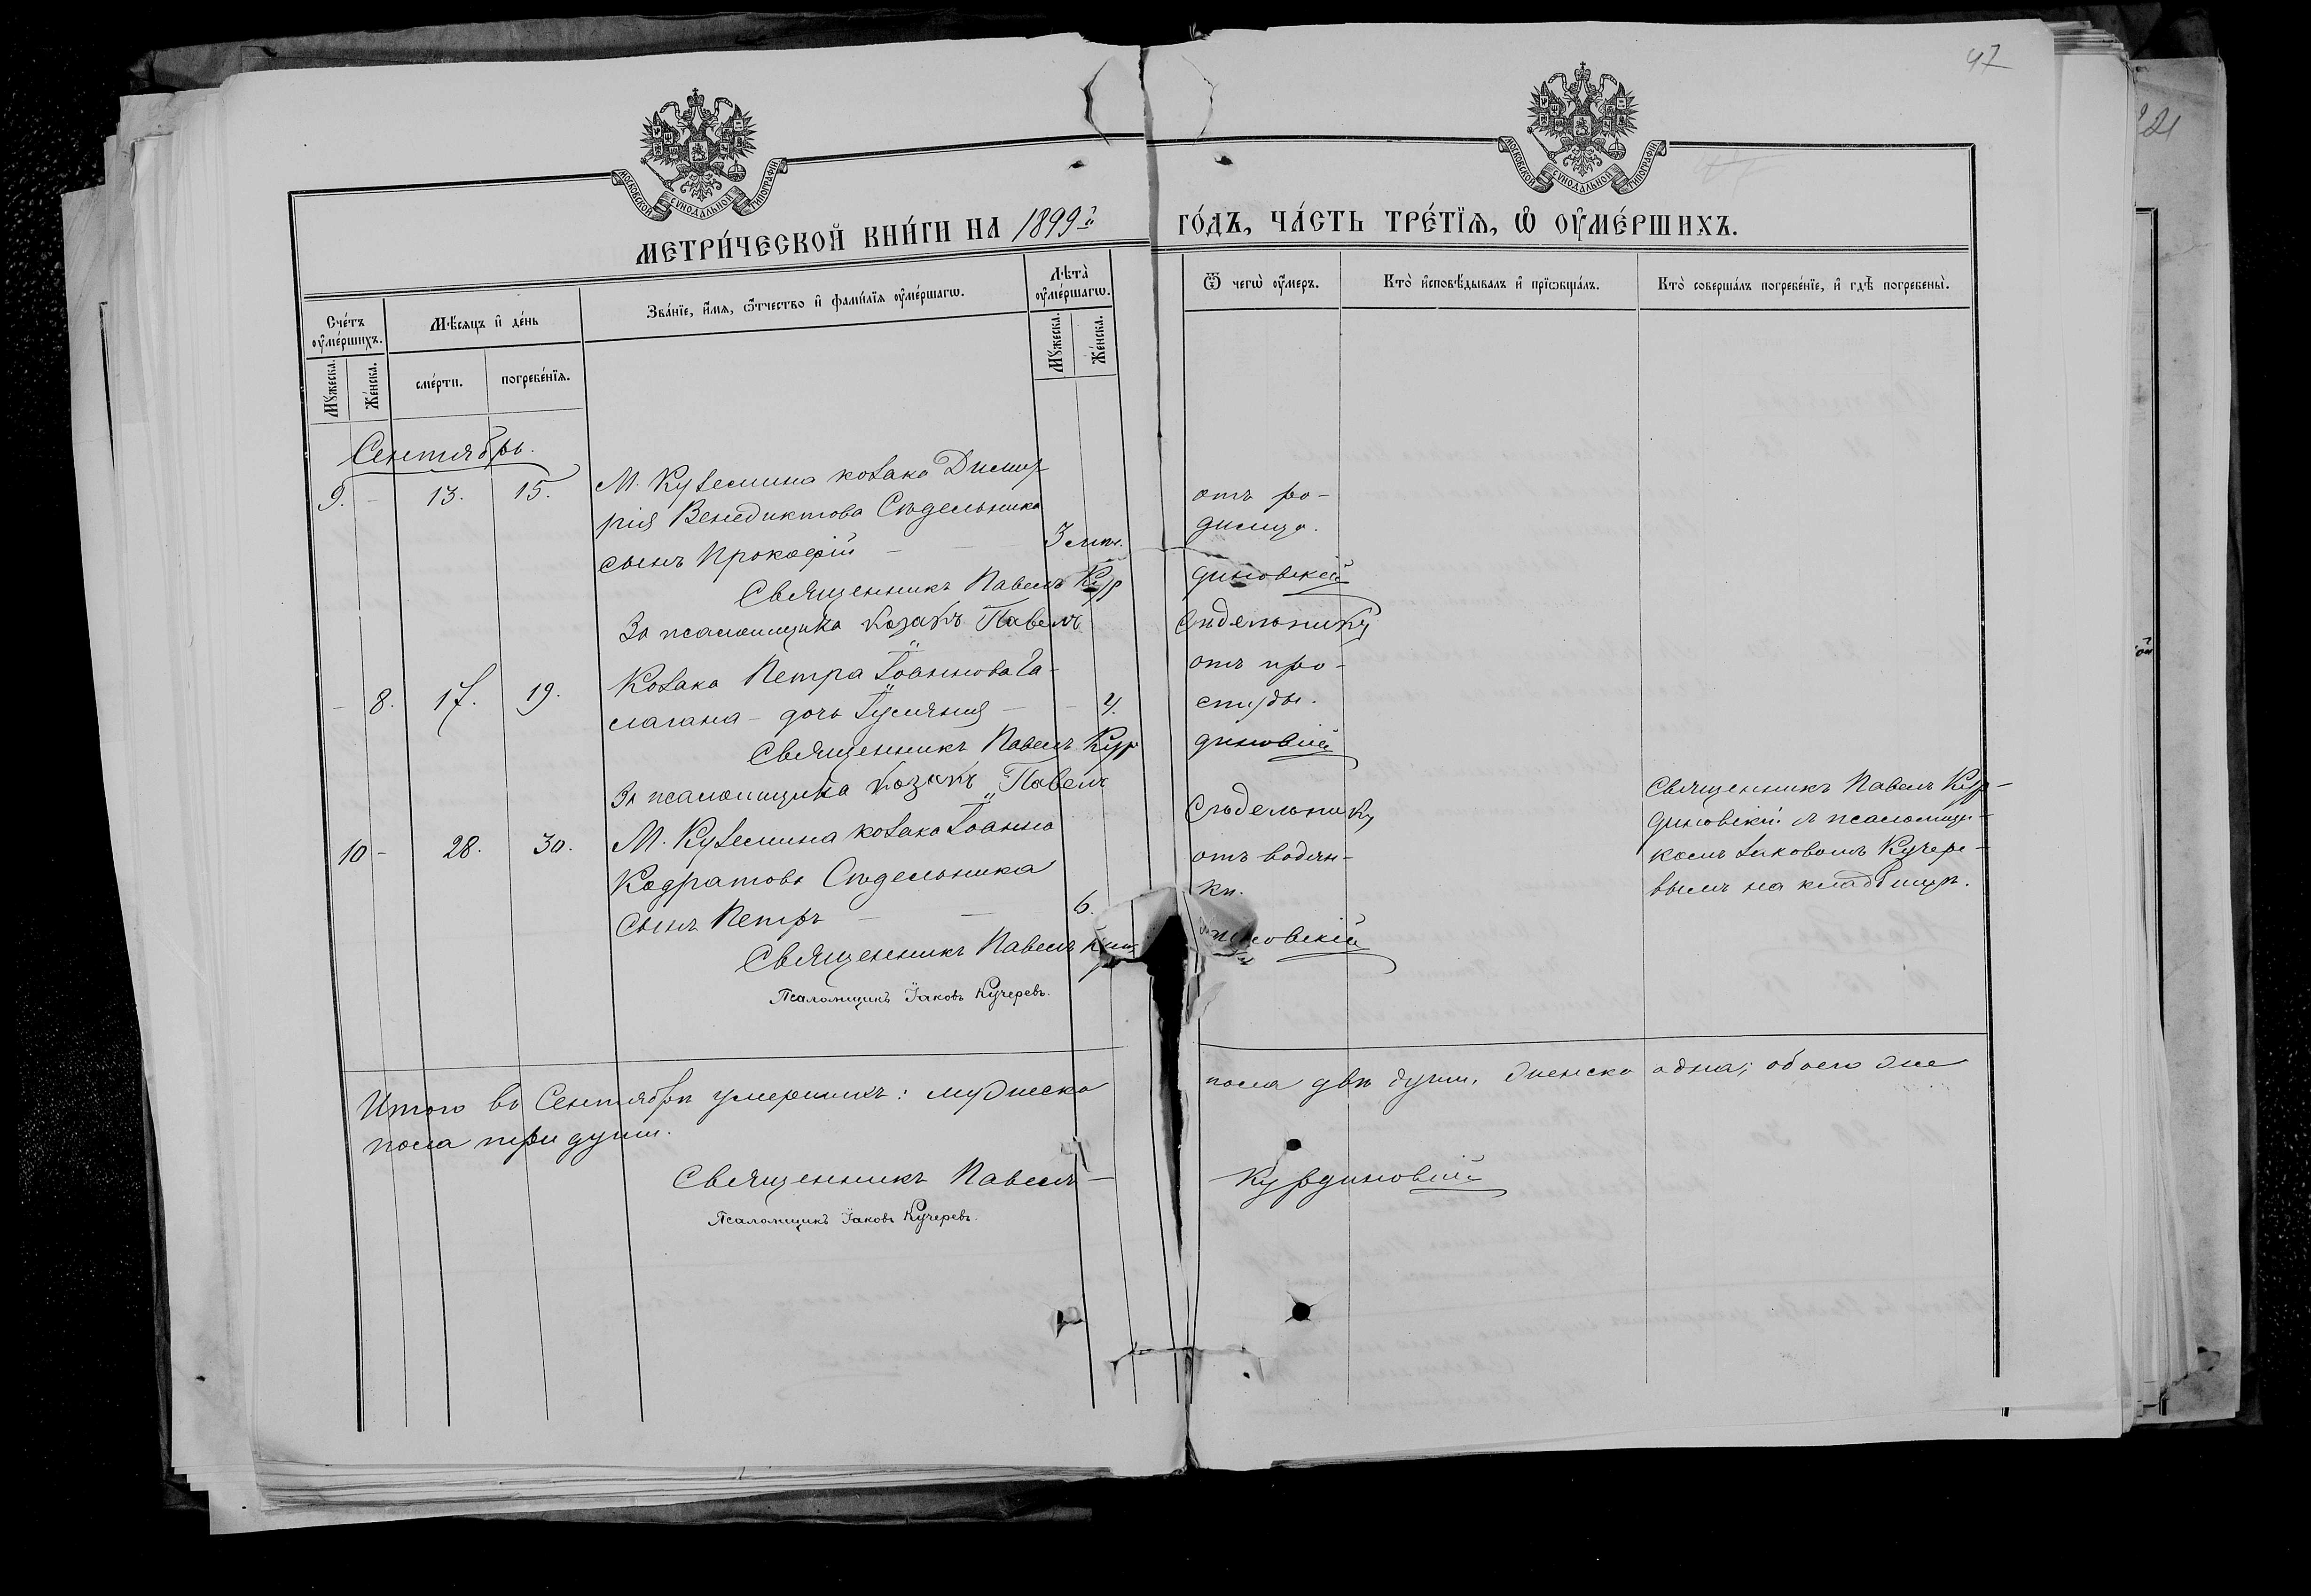 47
МОСКОВСКОЙ СѴНОДАЛЬНОЙ ТИПОГРАФІИ
МОСКОВСКОЙ СѴНОДАЛЬНОЙ ТИПОГРАФІИ
МЕТРИ́ЧЕСКОЙ КНИ́ГИ НА 1899й ГО́ДЪ, ЧА́СТЬ ТРЕ́ТЇѦ, Ѡ҆ ОУ҆МЕ́РШИХЪ.
Сче́тъ оу҆ме́ршихъ.
Мꙋ́жеска.
Же́нска.
Мѣ́сяцъ и҆ де́нь
сме́рти.
погребе́нїѧ.
Зва́нїе, и҆́мѧ, ѻ҆́тчество и҆ фамі́лїѧ оу҆ме́ршагѡ.
Лѣ́та̀ оу҆ме́ршагѡ.
Мꙋ́жеска.
Же́нска.
Ѿ чегѡ̀ оу҆́меръ.
Кто̀ и҆сповѣ́дывалъ и҆ прїѡбща́лъ.
Кто̀ соверша́лъ погребе́нїе, и҆ гдѣ̀ погребены̀.
Сентябрь.
9. - 13. 15. М. Куземина козака Димит-
рія Венедиктова Сѣдельника
сынъ Прокофій - - 3 лѣт.
отъ ро-
димца.
Священникъ Павелъ Кур диновскій
За псаломщика козакъ Павелъ Сѣдельникъ
- 8. 17. 19. Козака Петра Іоаннова Га-
лагана - дочь - - 4.
отъ про-
студы.
Священникъ Павелъ Кур диновскій
За псаломщика козакъ Павелъ Сѣдельникъ
10 - 28. 30. М. Куземина козака Іоанна
Кодратова Сѣдельника
сынъ Петръ - - 6.
отъ водян-
ки.
Священникъ Павелъ Кур-
диновскій съ псаломщи-
комъ Іаковомъ Кучере-
вымъ на кладбищѣ.
Священникъ Павелъ диновскій
Псаломщикъ Іаковъ Кучеревъ.
Итого въ Сентябрѣ умершихъ: мужеска пола двѣ души, женска одна; обоего же
пола три души.
Священникъ Павелъ - Курдиновскій
Псаломщикъ Іаковъ Кучеревъ.